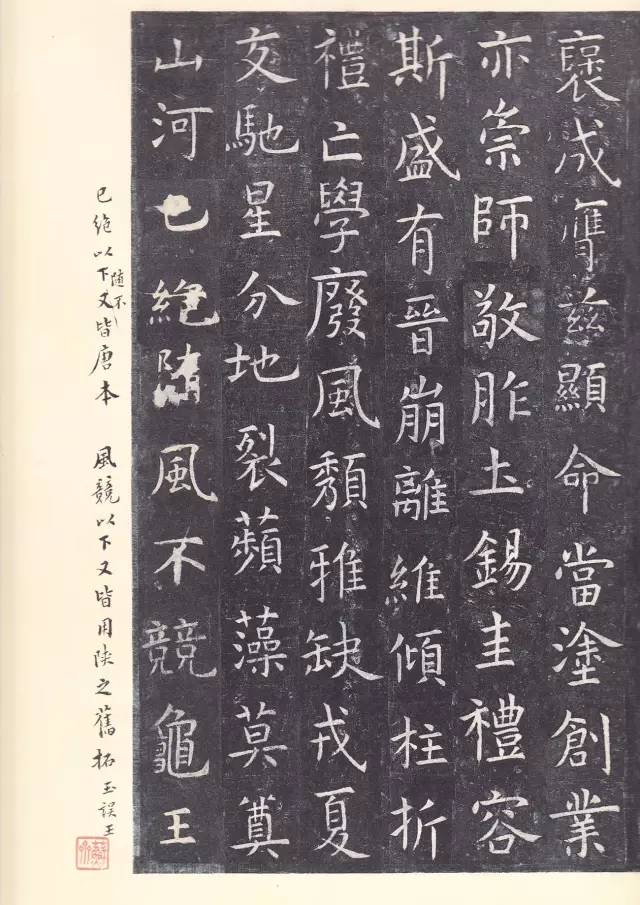 褒成膺兹顯命當塗創業
亦崇師敬胙土錫圭禮容
斯盛有晉崩離維傾柱折
禮亡學廢風頽雅缺戎夏
交馳星分地裂蘋藻莫奠
山河已絶隨風不競龜王
已絶以下又皆唐本 風競以下又皆用陝之舊拓 玉誤王
隨不